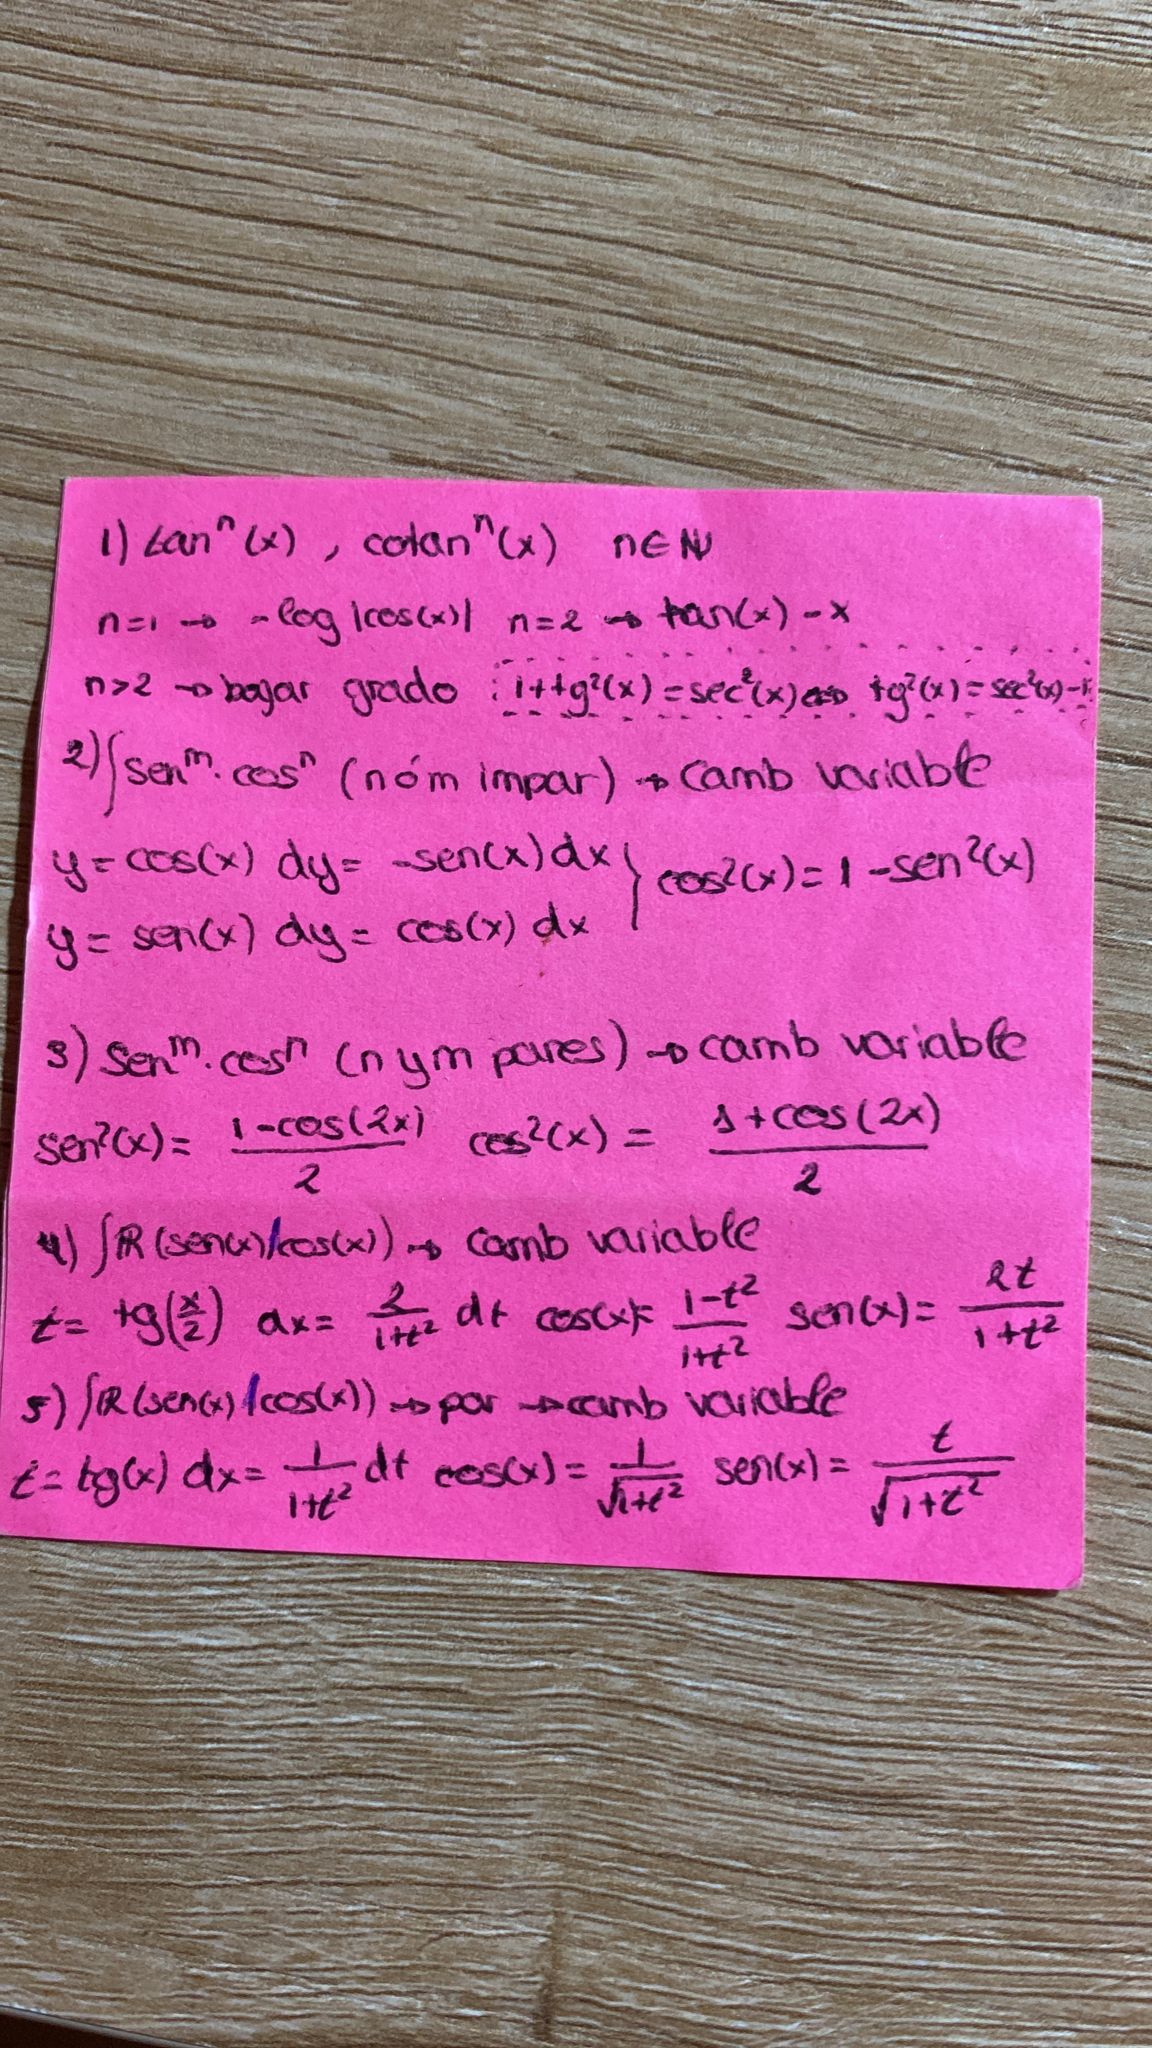 1) tanⁿ(x) , cotanⁿ(x) n∈ℕ
n=1 → -log|cos(x)| n=2 → tan(x)-x
n>2 → bajar grado 1+tg²(x)=sec²(x) ⇔ tg²(x)=sec²(x)-1
2) ∫senᵐ·cosⁿ (n ó m impar) → camb variable
y=cos(x) dy= -sen(x)dx } cos²(x)=1-sen²(x)
y= sen(x) dy= cos(x) dx
3) senᵐ·cosⁿ (n y m pares) → camb variable
sen²(x)= (1-cos(2x))/2 cos²(x)= (1+cos(2x))/2
4) ∫R(sen(x)/cos(x)) → camb variable
t= tg(x/2) dx= 2/(1+t²) dt cos(x)= (1-t²)/(1+t²) sen(x)= 2t/(1+t²)
5) ∫R(sen(x)/cos(x)) → par → camb variable
t= tg(x) dx= 1/(1+t²) dt cos(x)= 1/√(1+t²) sen(x)= t/√(1+t²)